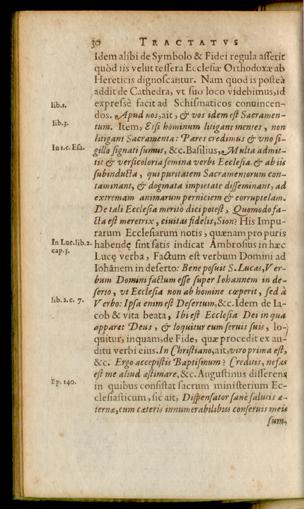 30 TRACTATVS
Idem alibi de Symbolo & Fidei regula asserit
quòd iis velut tessera Ecclesiæ Orthodoxæ ab
Hereticis dignoscantur. Nam quod is posteà
addit de Cathedra, vt suo loco videbimus, id
expressè facit ad Schismaticos conuincen-
lib.1.
dos. Apud nos, ait, & vos idem est Sacramen-
lib.3.
tum. Item, Etsi hominum litigant mentes, non
litigant Sacramenta: Pares credimus & vno si-
In 1.c. Esa.
gillo signati sumus, &c. Basilius, Multa admit-
tit & versicoloria semina verbi Ecclesia. & ab iis
subinducta, qui puritatem Sacramentorum con-
taminant, & dogmata impietate disseminant, ad
extremam animarum perniciem & corruptelam.
De tali Ecclesia meritò dici potest, Quomodo fa-
cta est meretrix, ciuitas fidelis, Sion? His Impu-
rarum Ecclesiarum notis, quænam pro puris
In Luc. lib.2.
cap.3.
habendę sint satis indicat Ambrosius in hæc
Lucę verba, Factum est verbum Domini ad
Iohānem in deserto: Bene posuit S. Lucas, Ver-
bum Domini factum esse super Iohannem in de-
serto, vt Ecclesia non ab homine cœperit, sed à
lib.2. c. 7.
Verbo: Ipsa enim est Desertum, &c. Idem de Ia-
cob & vita beata, Ibi est Ecclesia Dei in qua
apparet Deus, & loquitur cum seruis suis, lo-
quitur, inquam, de Fide, quæ procedit ex au-
ditu verbi eius. In Christiano, ait, viro prima est,
&c. Ergo accepistis Baptismum? Creditis, nefas
est me aliud æstimare, &c. Augustinus disserens
Ep. 140.
in quibus consistat sacrum ministerium Ec-
clesiasticum, sic ait, Dispensator sanè salutis æ-
ternæ, cum cæteris innumerabilibus conseruis meis
sum,